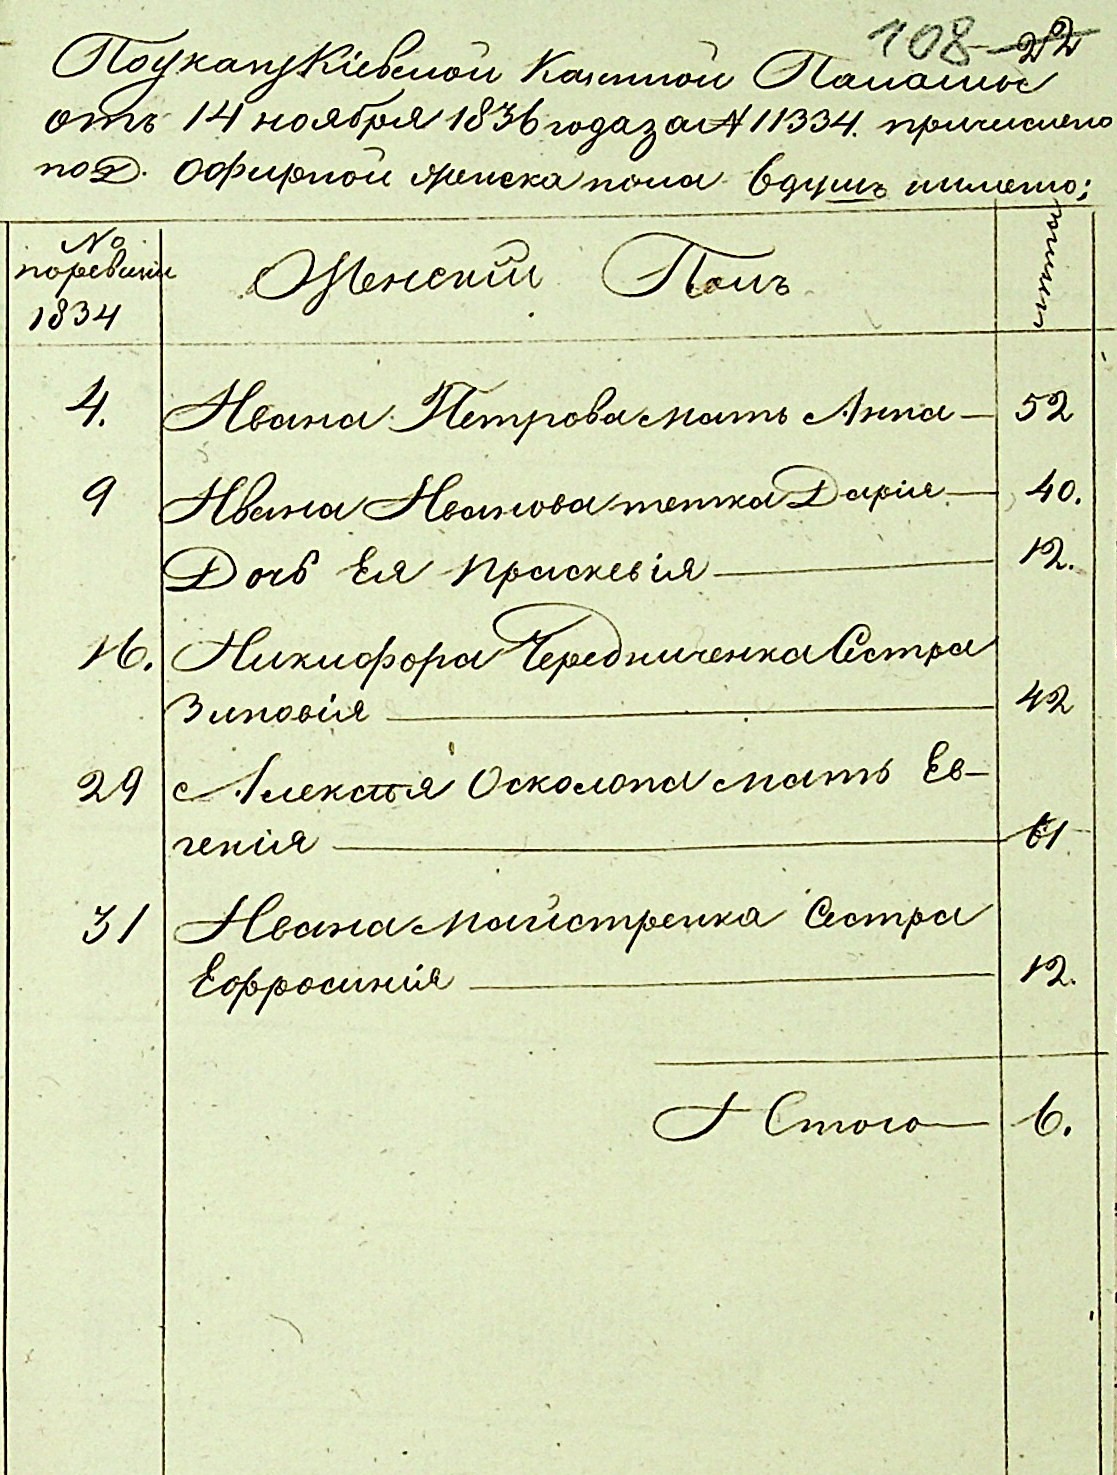 108 22
Поуказу Кіевской Казенной Палаты
отъ 14 ноября 1836 года за № 11334. причислено
по д. Офирной женска пола 6 душъ именно;
№ поревизіи 1834
Женскій Полъ
лѣта
4. Ивана Петрова мать Анна — 52
9 Ивана Иванова тетка Дарія — 40.
Дочь Ея Праскевія — 12.
16. Никифора Чередниченка Сестра
Зиновія — 42
29 Алексѣя Осколопа мать Ев-
генія — 61
31 Ивана Майстренка Сестра
Ефросинія — 12.
Итого — 6.